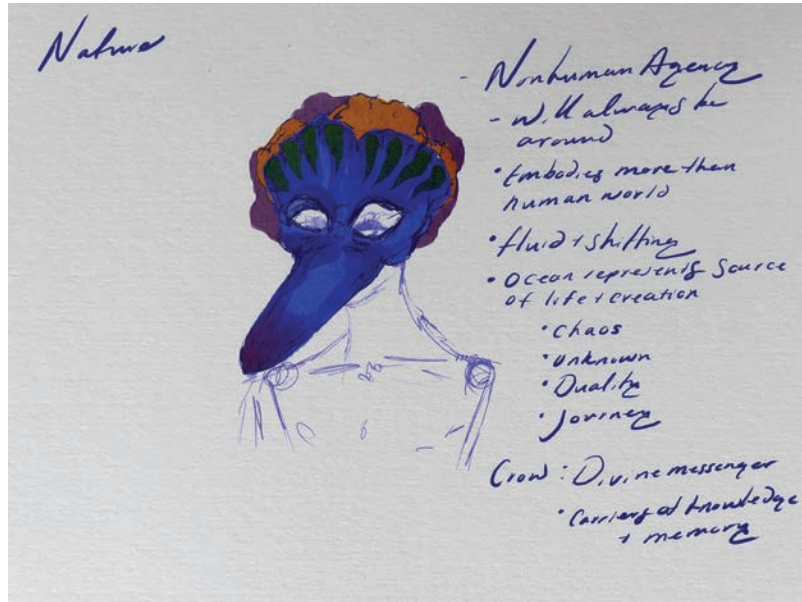 Nature
- Nonhuman Agency
- Will always be
around
• Embodies more than
human world
• fluid + shifting
• Ocean represents Source
of life + creation
• Chaos
• unknown
• Duality
• Journey
Crow: Divine messenger
• Carriers of knowledge
+ memory